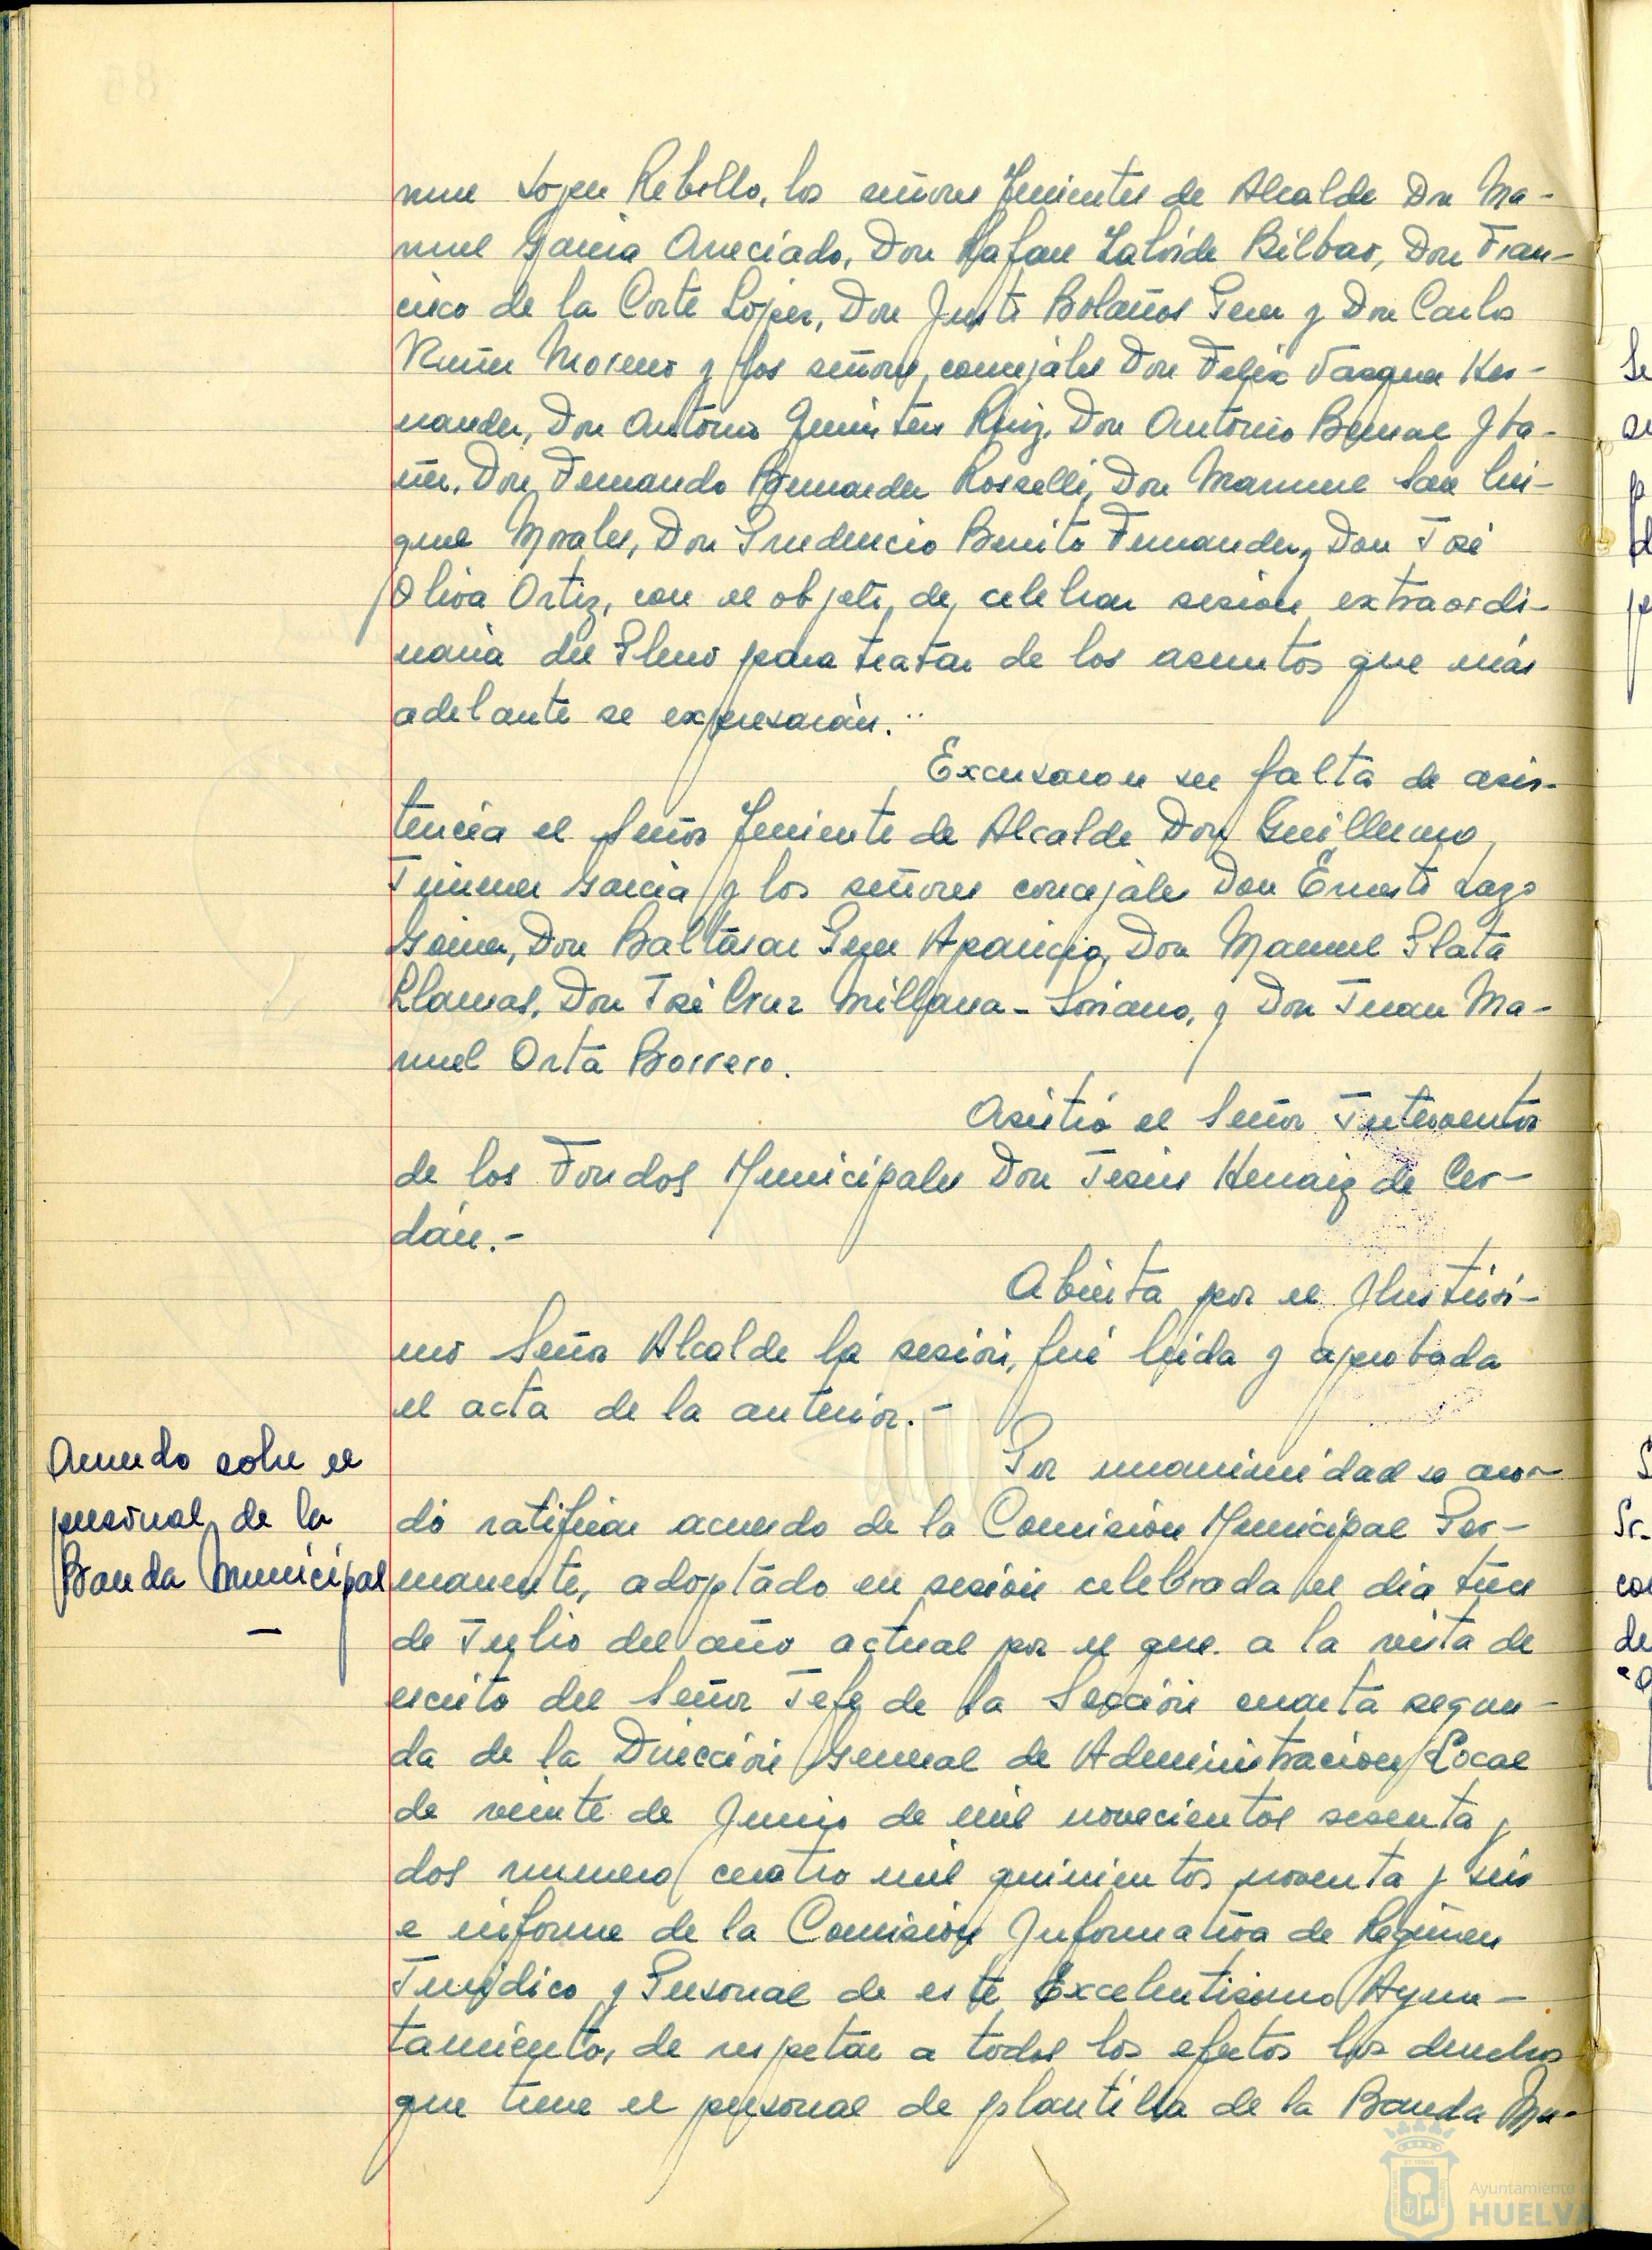 nuel López Rebollo, los señores Tenientes de Alcalde Don Ma-
nuel García Aneciado, Don Rafael Lalvide Bilbao, Don Fran-
cisco de la Corte López, Don Justo Bolaños Perez y Don Carlos
Nuñez Moreno y los señores concejales Don Felix Vazquez Her-
nandez, Don Antonio Quintero Ruiz, Don Antonio Bernal Iba-
ñez, Don Fernando Bernardez Rosselli, Don Manuel San Mi-
guel Morales, Don Prudencio Benito Fernandez, Don José
Oliva Ortiz, con el objeto de celebrar sesión extraordi-
naria del Pleno para tratar de los asuntos que más
adelante se expresarán.
Excusaron su falta de asis-
tencia el Señor Teniente de Alcalde Don Guillermo
Jimenez García y los señores concejales Don Ernesto Lazo
Don Baltasar Perez Aparicio, Don Manuel Plata
Llamas, Don José Cruz Soriano, y Don Juan Ma-
nuel Orta Borrero.
Asistió el Señor Interventor
de los Fondos Municipales Don Jesús Henaiz de Cer-
dán.-
Abierta por el Ilustrísi-
mo Señor Alcalde la sesión, fué leida y aprobada
el acta de la anterior.-
Acuerdo sobre el
personal de la
Banda Municipal
-
Por unanimidad se acor-
dó ratificar acuerdo de la Comisión Municipal Per-
manente, adoptado en sesión celebrada el dia tres
de Julio del año actual por el que a la vista de
escrito del Señor Jefe de la Sección cuarta segun-
da de la Dirección General de Administracion Local
de veinte de Junio de mil novecientos sesenta y
dos numero cuatro mil quinientos noventa y seis
e informe de la Comisión Informativa de Regimen
Juridico y Personal de este Excelentisimo Ayun-
tamiento, de respetar a todos los efectos los derechos
que tiene el personal de plantilla de la Banda Mu-
Ayuntamiento de
HUELVA